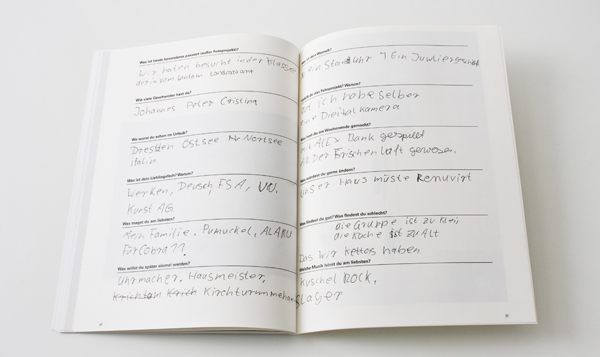 Was ist heute besonderes passiert (außer Fotoprojekt)?
Wir haten besucht in der Klasse
Wie viele Geschwister hast du?
Johannes Peter Cristina
Wo warst du schon im Urlaub?
Dresden Ostsee Norlsee
Italin
Was ist dein Lieblingsfach? Warum?
Werken, Deutsch, FSA, VU.
Kunst AG.
Was magst du am liebsten?
Mein Familie, Pumuckel, ALARM
für Cobra 11.
Was willst du später einmal werden?
Uhrmacher, Hausmeister,
Kirchturm
ein Standuhr 1 Ein Juwlier
ich habe selber
eine Digital Kamera
du am Wochenende gemacht?
mit ALEX Dank gespielt
An Der Frischen Luft gewesen.
würdest du gerne ändern?
unser Haus müste Renuvirt
findest du gut? Was findest du schlecht?
die Gruppe ist zu klein
die Küche ist zu Alt
Das wir kettos haben
Welche Musik hörst du am liebsten?
Kuschel ROCK,
Slager